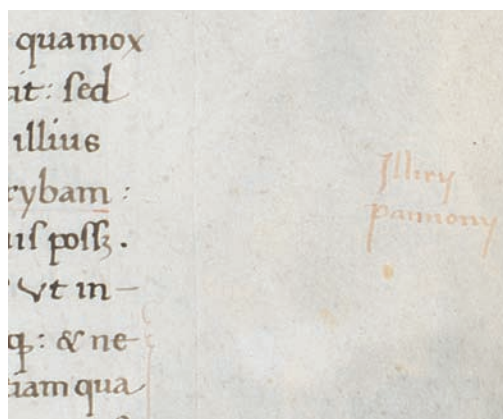 quamox
it: sed
illius
rybam:
uis possꝫ.
ut in-
qꝫ: & ne-
tiam qua
Illiry
pannony